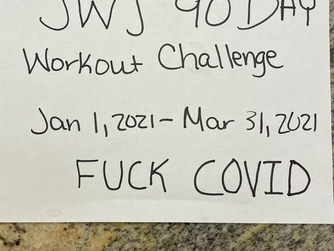 JWJ 90 DAY
Workout Challenge
Jan 1, 2021 - Mar 31, 2021
FUCK COVID